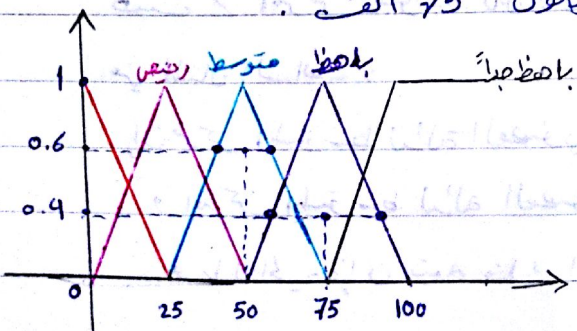 75 الف .
رخيص متوسط باهظ باهظ جداً
1
0.6
0.4
0 25 50 75 100